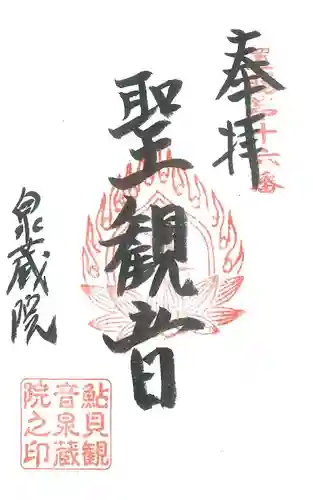 奉拝
十六番
聖観音
泉蔵院
鮎貝観
音泉蔵
院之印